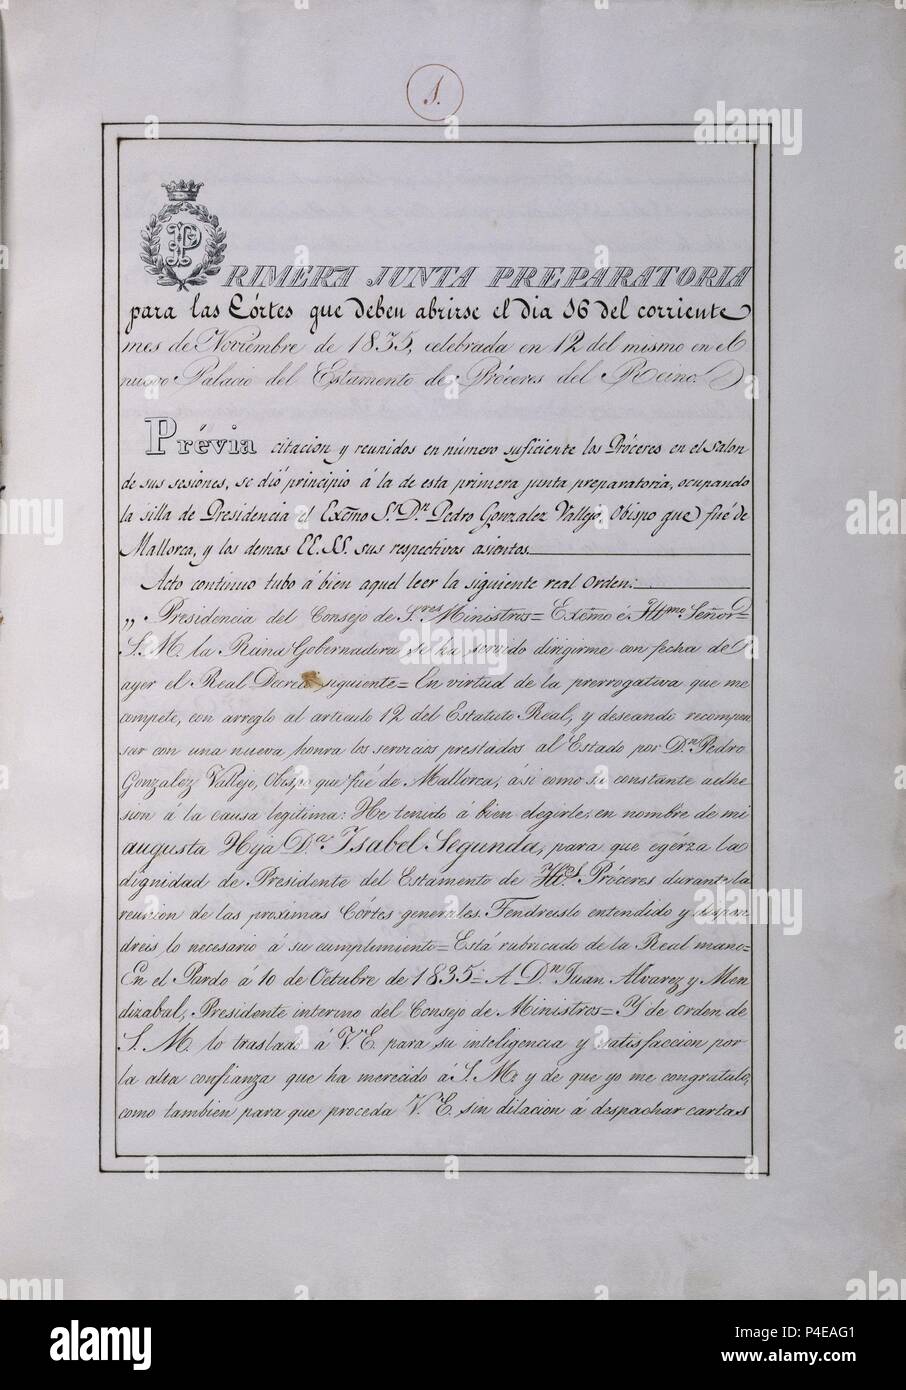 1.
PRIMERA JUNTA PREPARATORIA
para las Córtes que deben abrirse el dia 16 del corriente
mes de Noviembre de 1835, celebrada en 12 del mismo en el
nuevo Palacio del Estamento de Próceres del Reino.
Prévia citacion y reunidos en número suficiente los Próceres en el Salon
de sus sesiones, se dió principio á la de esta primera junta preparatoria, ocupando
la silla de Presidencia el Excmo Sr. Dn. Pedro Gonzalez Vallejo, Obispo que fué de
Mallorca, y los demas EE. SS. sus respectivos asientos.
Acto continuo tubo á bien aquel leer la siguiente real orden:
„ Presidencia del Consejo de Sres. Ministros= Excmo é Iltmo Señor=
S. M. la Reina Gobernadora se ha servido dirigirme con fecha de
ayer el Real Decreto siguiente= En virtud de la prerrogativa que me
compete, con arreglo al articulo 12 del Estatuto Real, y deseando recompen
sar con una nueva honra los servicios prestados al Estado por Dn. Pedro
Gonzalez Vallejo, Obispo que fué de Mallorca, ási como su constante adhe
sion á la causa legitima: He tenido á bien elegirle, en nombre de mi
augusta Hija Da. Isabel Segunda, para que egérza la
dignidad de Presidente del Estamento de Próceres durante la
reunion de las proximas Córtes generales. Tendreislo entendido y dispon
dreis lo necesario á su cumplimiento= Está rubricado de la Real mano=
En el Pardo á 10 de Octubre de 1835= A Dn. Juan Alvarez y Men
dizabal, Presidente interino del Consejo de Ministros= Y de orden de
S. M. lo traslado á V. E. para su inteligencia y satisfaccion por
la alta confianza que ha merecido á S. M. y de que yo me congratulo,
como tambien para que proceda V. E. sin dilacion á despachar cartas
alamy
Image ID: P4EAG1
www.alamy.com